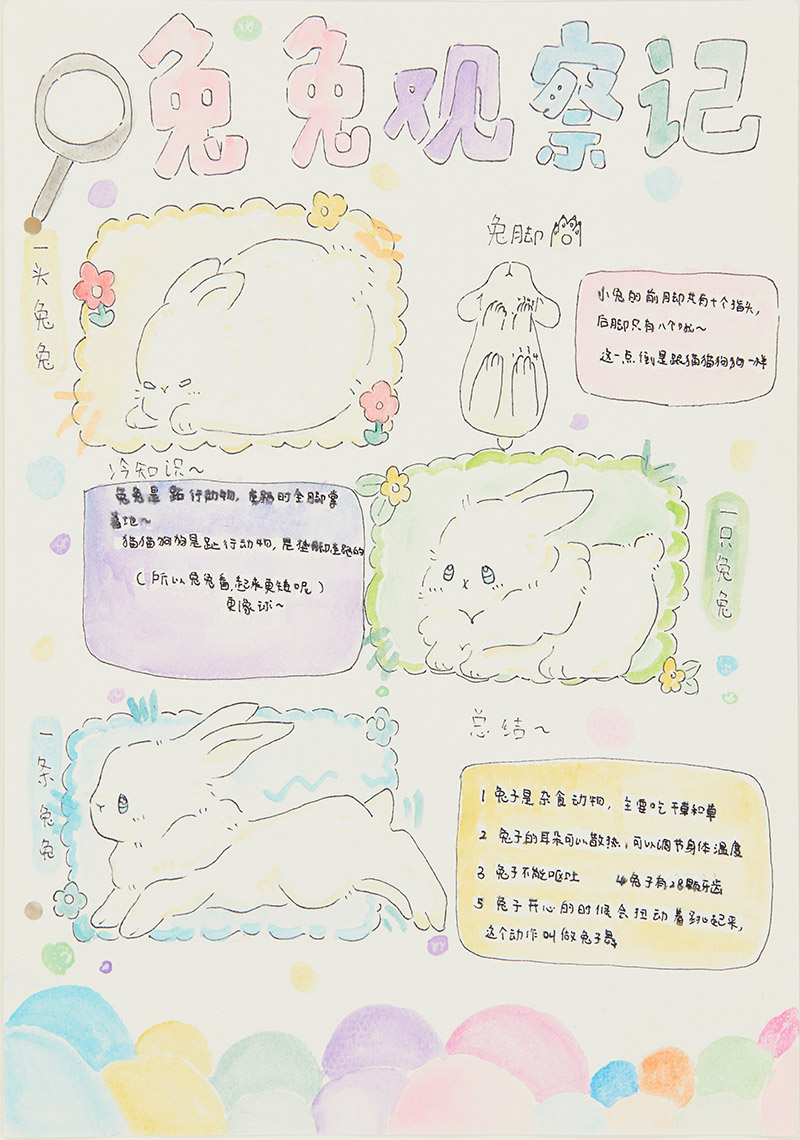 兔兔观察记
一头兔兔
兔脚
小兔的前脚共有十个指头,
后脚只有八个哦~
这一点倒是跟猫猫狗狗一样
冷知识~
兔兔是跖行动物,走路时全脚掌
着地~
猫猫狗狗是趾行动物,是垫脚走路的
(所以兔兔看起来更矮呢)
更像球~
一只兔兔
一条兔兔
总结~
1 兔子是杂食动物,主要吃干草和草
2 兔子的耳朵可以散热,可以调节身体温度
3 兔子不能呕吐 4 兔子有28颗牙齿
5 兔子开心的时候会扭动着跳起来,
这个动作叫做兔子舞